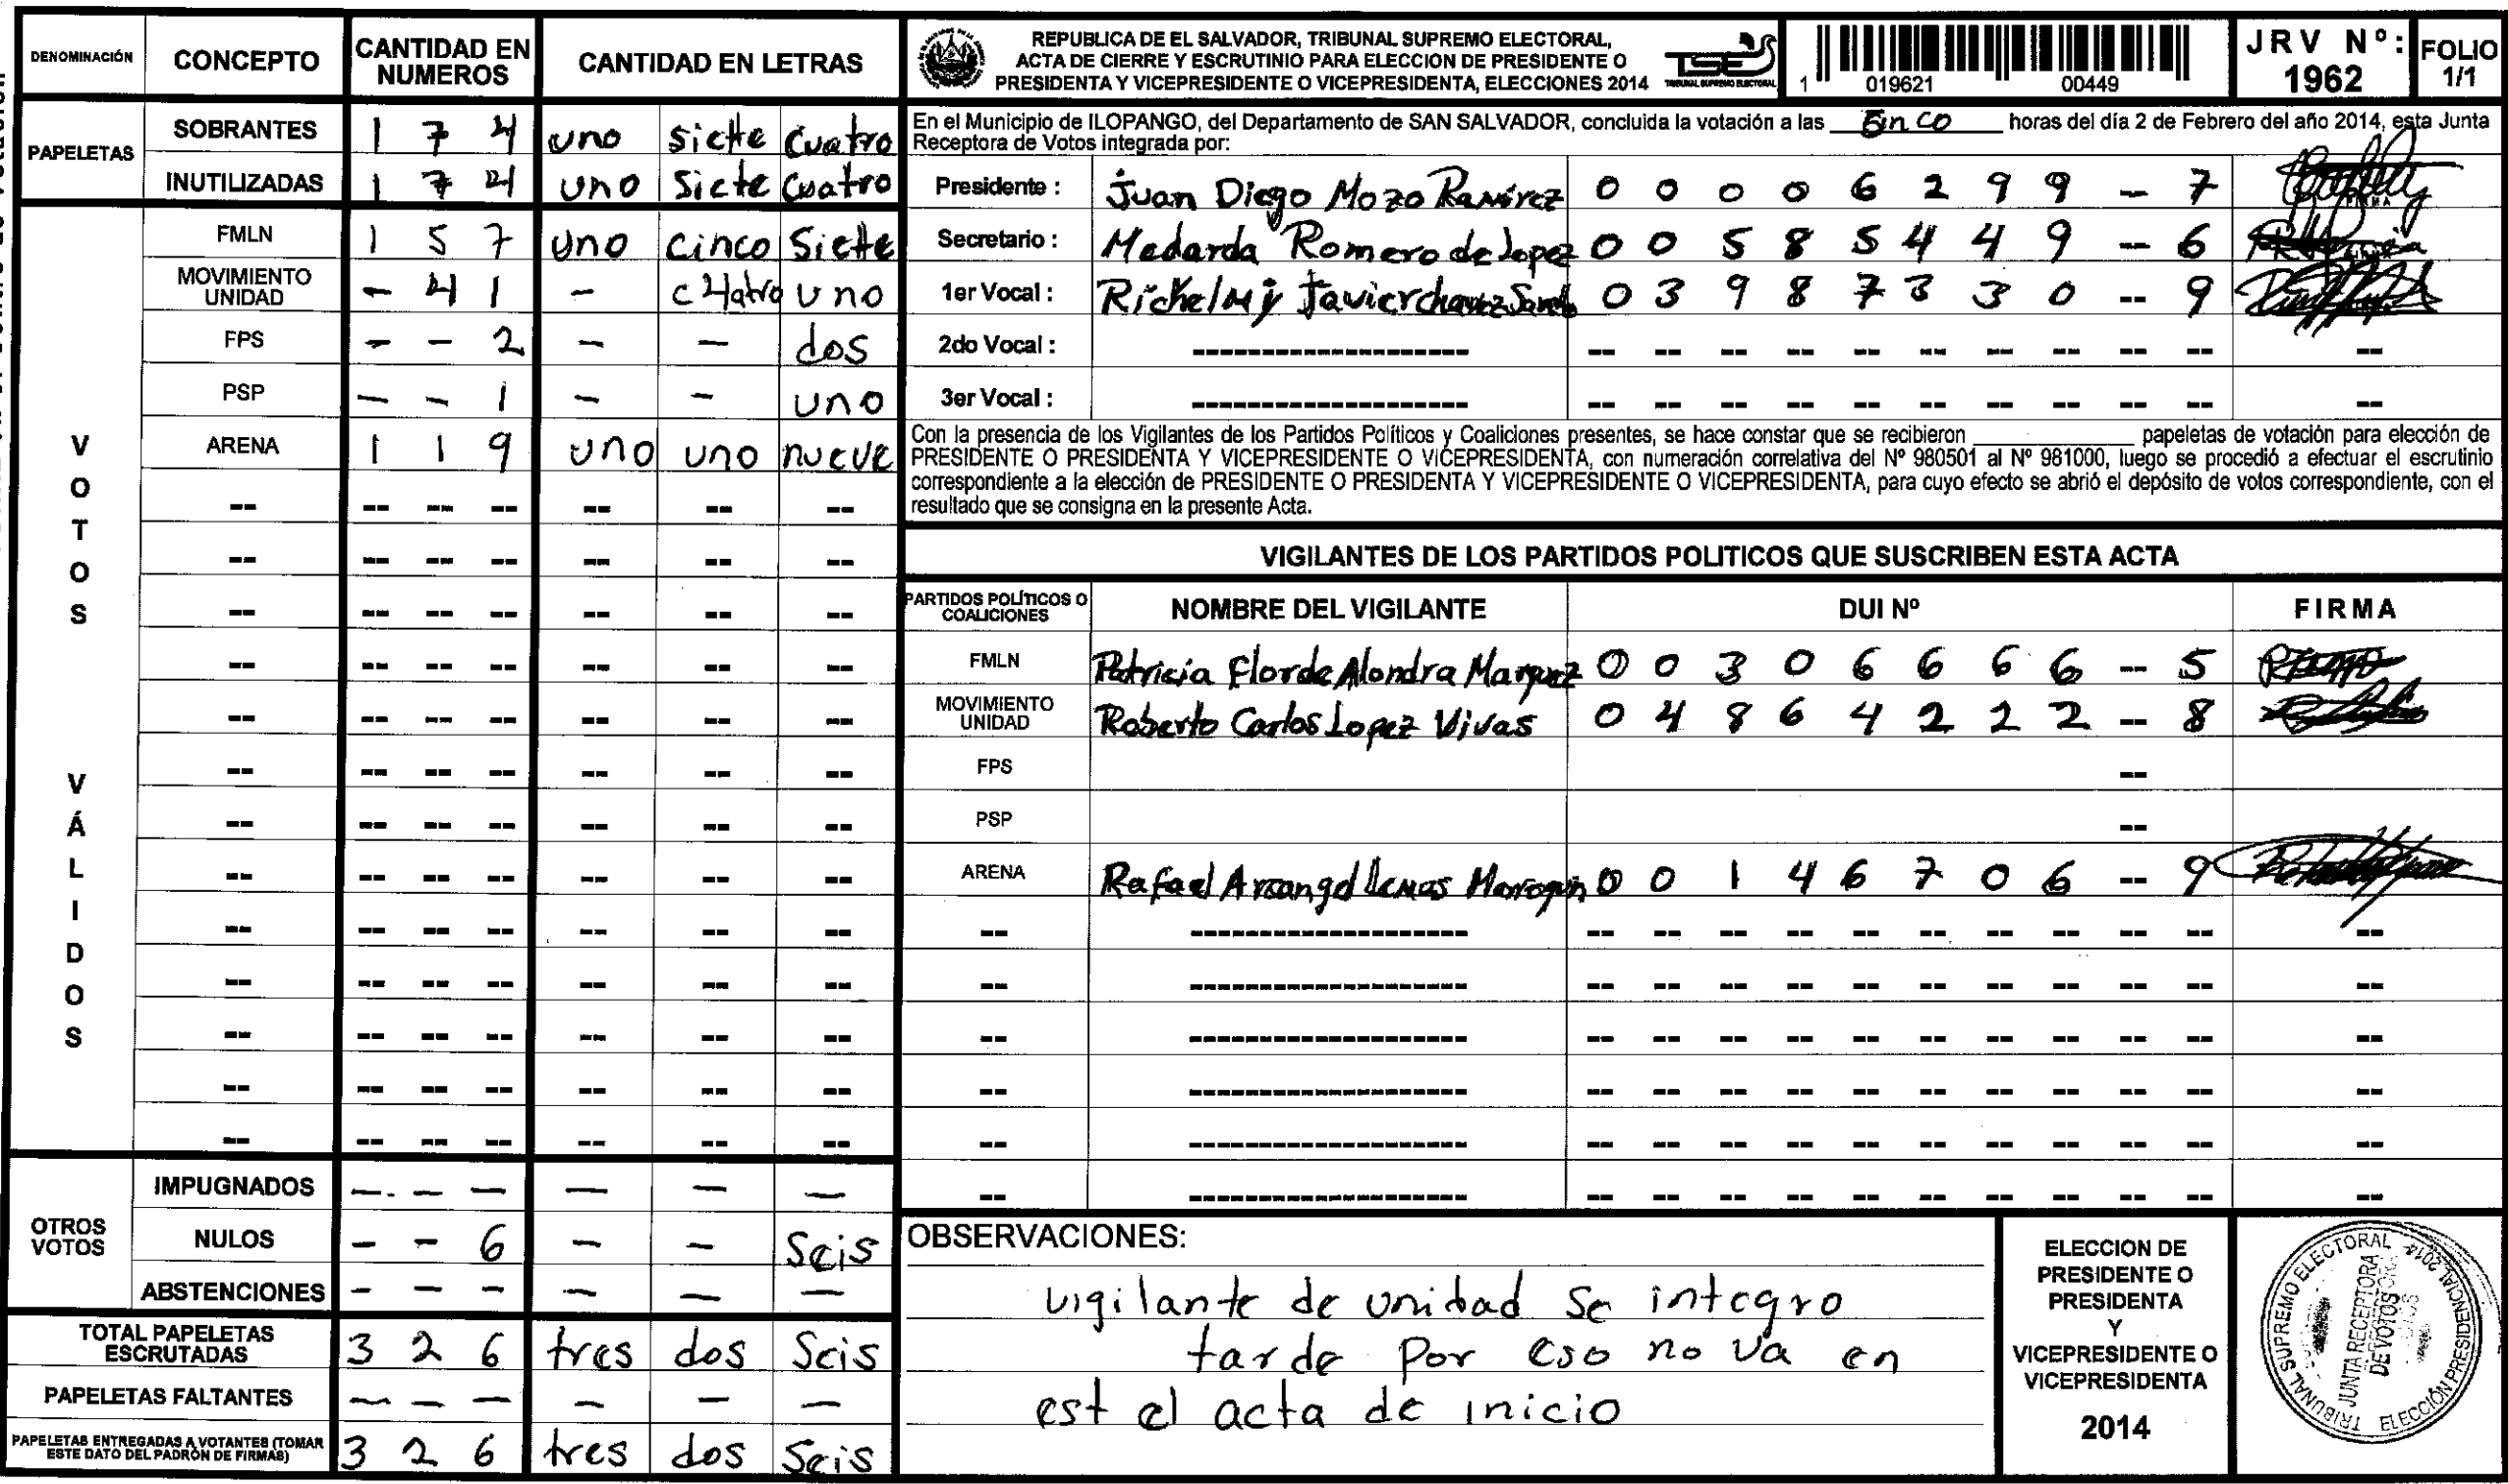 DENOMINACIÓN CONCEPTO CANTIDAD EN NUMEROS CANTIDAD EN LETRAS
PAPELETAS
SOBRANTES 1 7 4 uno siete cuatro
INUTILIZADAS 1 7 4 uno siete cuatro
VOTOS VÁLIDOS
FMLN 1 5 7 uno cinco siete
MOVIMIENTO UNIDAD - 4 1 - cuatro uno
FPS - - 2 - - dos
PSP - - 1 - - uno
ARENA 1 1 9 uno uno nueve
OTROS VOTOS
IMPUGNADOS - - - - - -
NULOS - - 6 - - Seis
ABSTENCIONES - - - - - -
TOTAL PAPELETAS ESCRUTADAS 3 2 6 tres dos Seis
PAPELETAS FALTANTES - - - - - -
PAPELETAS ENTREGADAS A VOTANTES (TOMAR ESTE DATO DEL PADRÓN DE FIRMAS) 3 2 6 tres dos Seis
REPUBLICA DE EL SALVADOR, TRIBUNAL SUPREMO ELECTORAL,
ACTA DE CIERRE Y ESCRUTINIO PARA ELECCION DE PRESIDENTE O
PRESIDENTA Y VICEPRESIDENTE O VICEPRESIDENTA, ELECCIONES 2014
TSE
TRIBUNAL SUPREMO ELECTORAL
1 019621 00449
JRV Nº: 1962
FOLIO 1/1
En el Municipio de ILOPANGO, del Departamento de SAN SALVADOR, concluida la votación a las Cinco horas del día 2 de Febrero del año 2014, esta Junta
Receptora de Votos integrada por:
Presidente : Juan Diego Mozo Ramírez 0 0 0 0 6 2 9 9 -- 7
Secretario : Medarda Romero de Lopez 0 0 5 8 5 4 4 9 -- 6
1er Vocal : Richelmy Javier chavez 0 3 9 8 7 3 3 0 -- 9
2do Vocal :
3er Vocal :
Con la presencia de los Vigilantes de los Partidos Políticos y Coaliciones presentes, se hace constar que se recibieron papeletas de votación para elección de
PRESIDENTE O PRESIDENTA Y VICEPRESIDENTE O VICEPRESIDENTA, con numeración correlativa del Nº 980501 al Nº 981000, luego se procedió a efectuar el escrutinio
correspondiente a la elección de PRESIDENTE O PRESIDENTA Y VICEPRESIDENTE O VICEPRESIDENTA, para cuyo efecto se abrió el depósito de votos correspondiente, con el
resultado que se consigna en la presente Acta.
VIGILANTES DE LOS PARTIDOS POLITICOS QUE SUSCRIBEN ESTA ACTA
PARTIDOS POLÍTICOS O COALICIONES NOMBRE DEL VIGILANTE DUI Nº FIRMA
FMLN Patricia Flor de Alondra Marquez 0 0 3 0 6 6 6 6 -- 5
MOVIMIENTO UNIDAD Roberto Carlos Lopez Vivas 0 4 8 6 4 2 2 2 -- 8
FPS --
PSP --
ARENA Rafael Arcangel 0 0 1 4 6 7 0 6 -- 9
OBSERVACIONES:
vigilante de unidad se integro
tarde por eso no va en
est el acta de inicio
ELECCION DE
PRESIDENTE O
PRESIDENTA
Y
VICEPRESIDENTE O
VICEPRESIDENTA
2014
TRIBUNAL SUPREMO ELECTORAL
ELECCIÓN PRESIDENCIAL 2014
JUNTA RECEPTORA
DE VOTOS